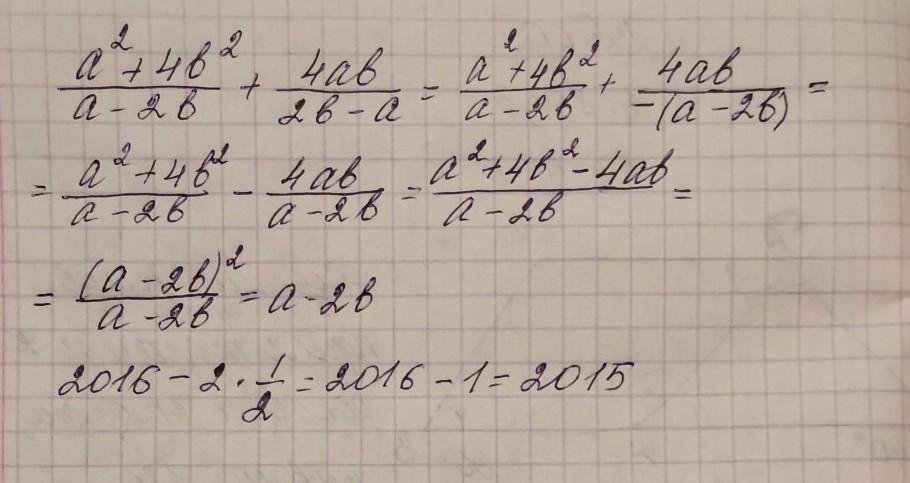 (a² + 4b²)/(a - 2b) + 4ab/(2b - a) = (a² + 4b²)/(a - 2b) + 4ab/(-(a - 2b)) =
= (a² + 4b²)/(a - 2b) - 4ab/(a - 2b) = (a² + 4b² - 4ab)/(a - 2b) =
= (a - 2b)²/(a - 2b) = a - 2b
2016 - 2 · 1/2 = 2016 - 1 = 2015